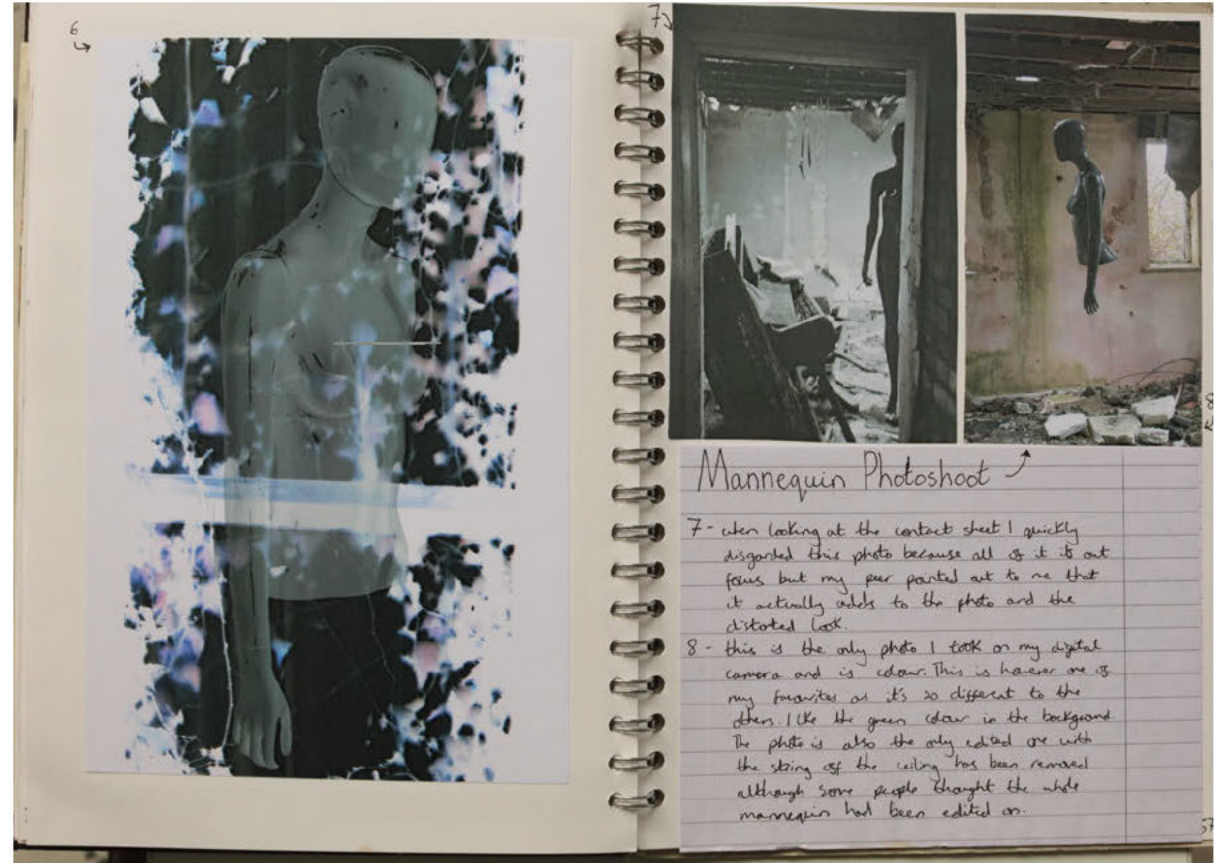 6
7
8
Mannequin Photoshoot
7 - when looking at the contact sheet I quickly
disgarded this photo because all of it is out
focus but my peer pointed out to me that
it actually adds to the photo and the
distorted look.
8 - this is the only photo I took on my digital
camera and is colour. This is however one of
my favourites as it's so different to the
others. I like the green colour in the background.
The photo is also the only edited one with
the string off the ceiling has been removed
although some people thought the whole
mannequin had been edited on.
57